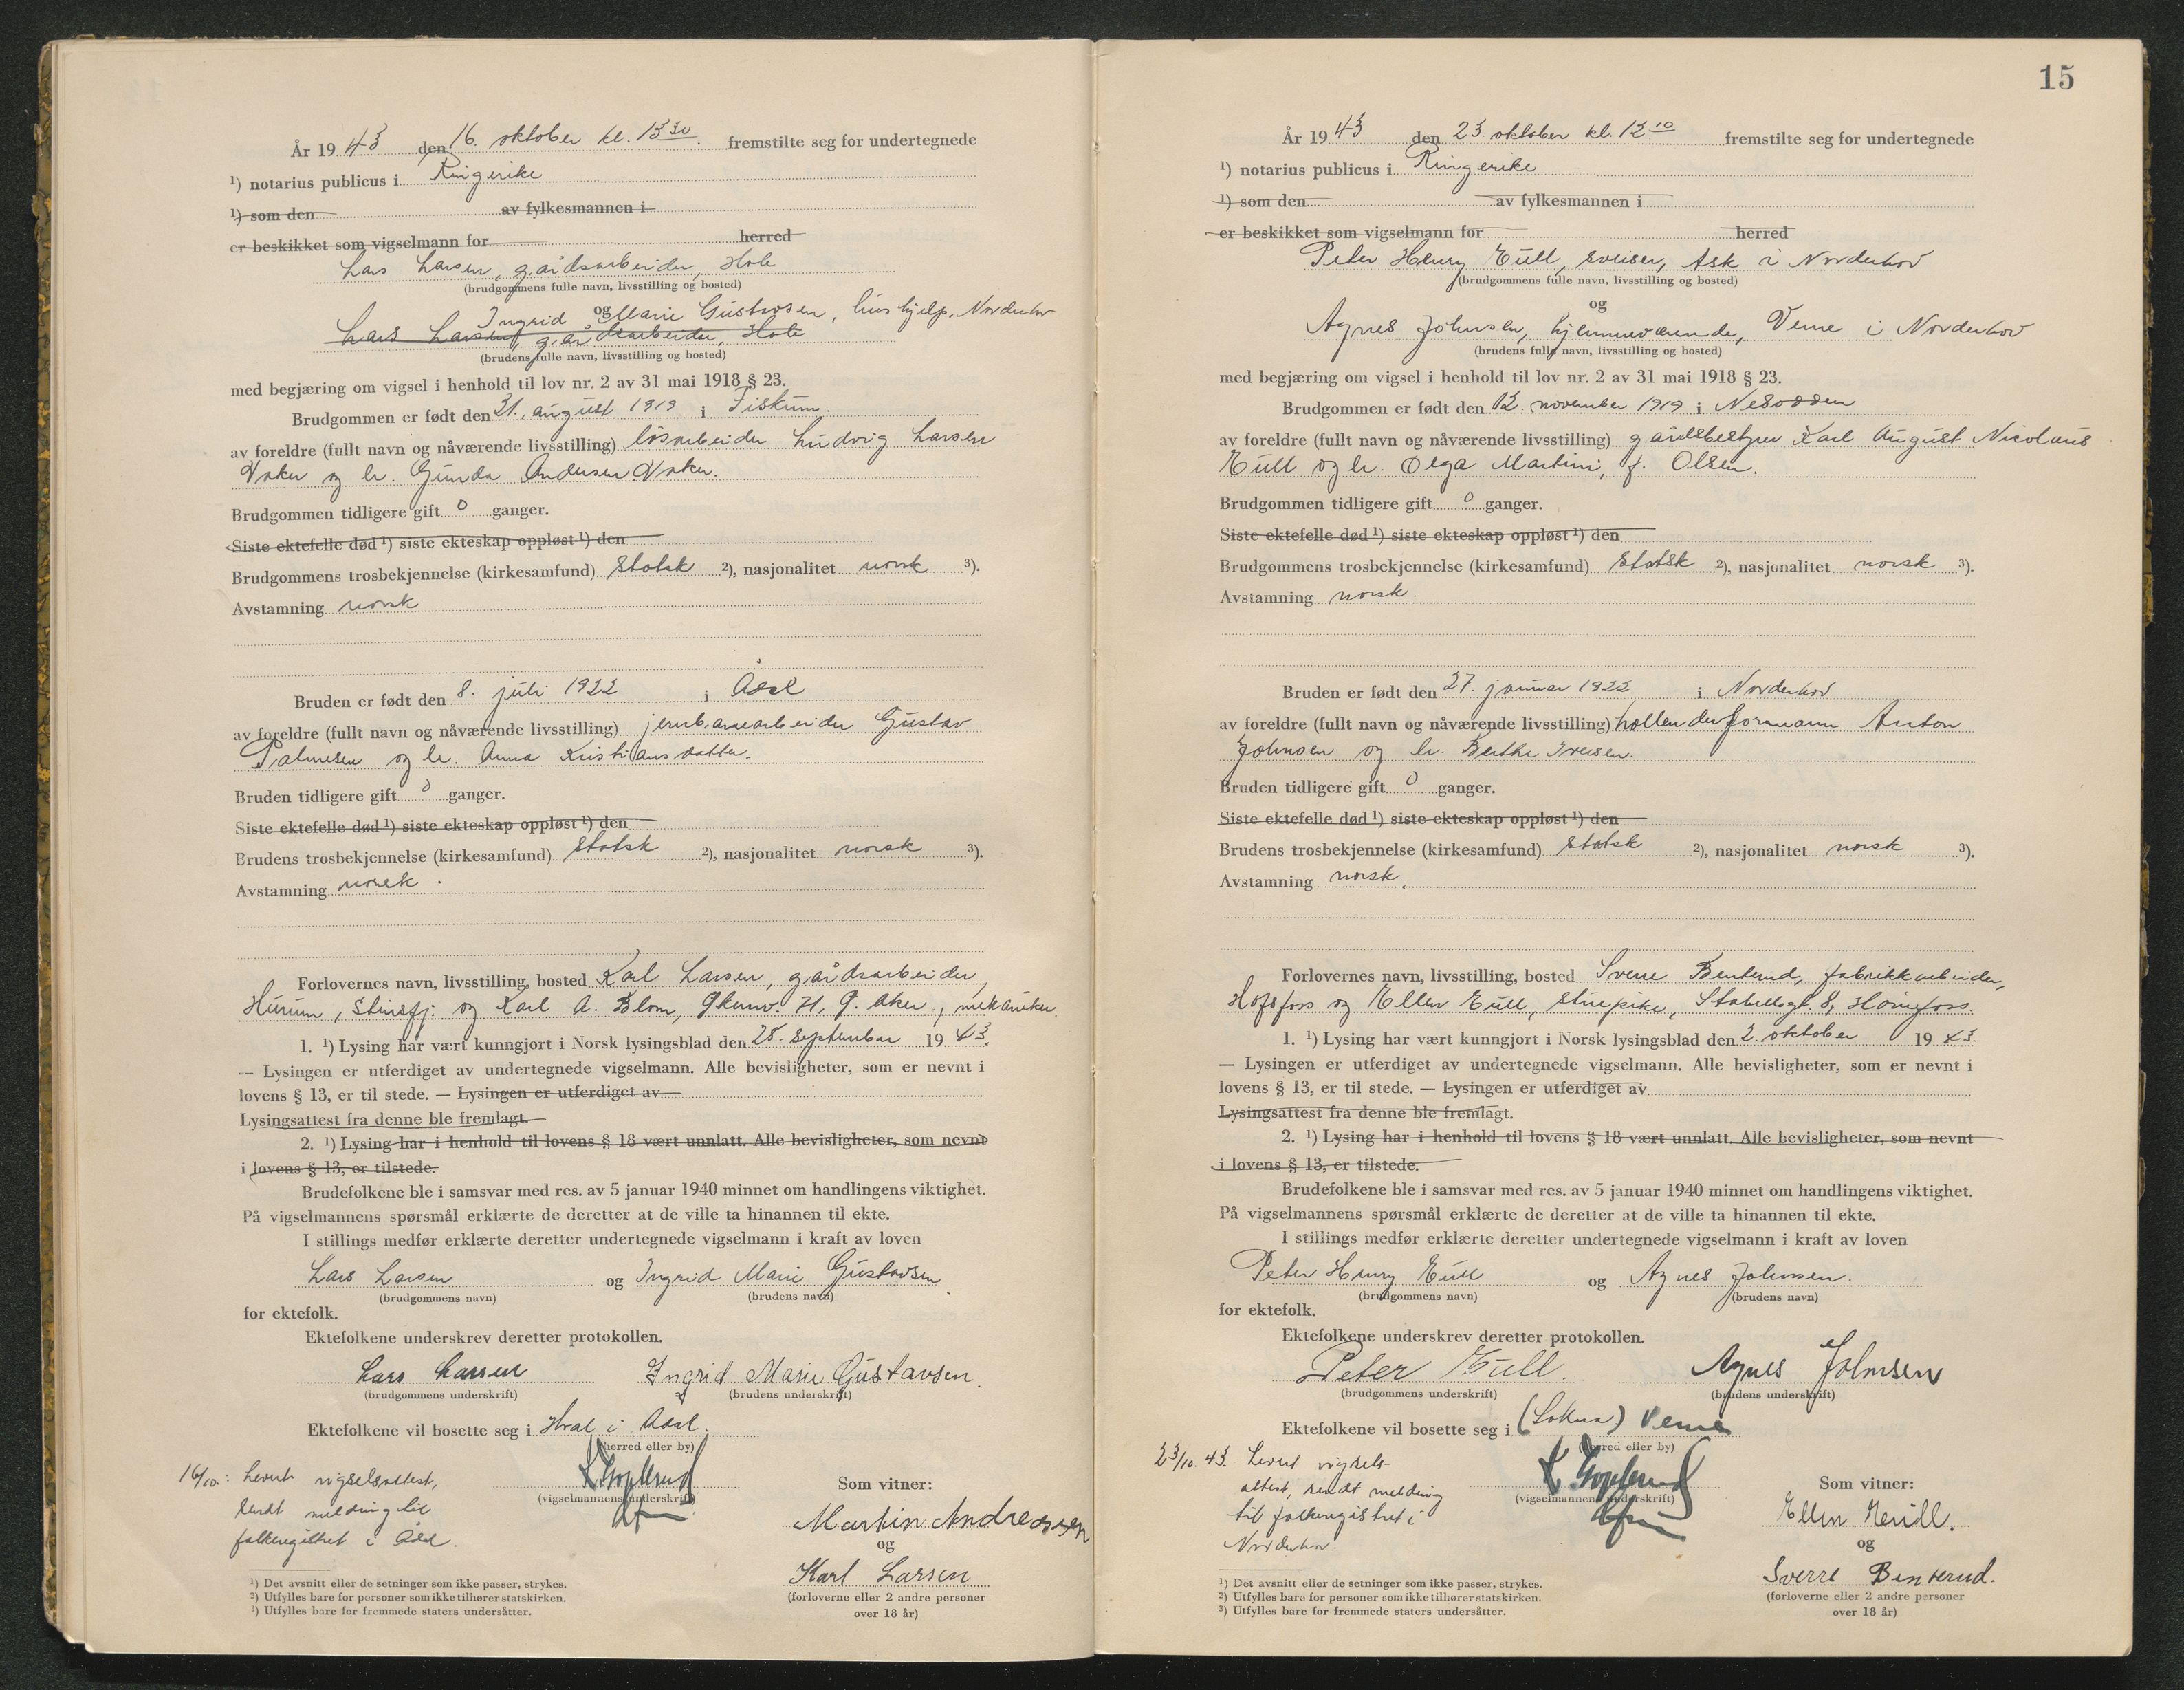 År 1943 den 16. oktober kl. 13 30. fremstilte seg for undertegnede
¹) notarius publicus i Ringerike
¹) som den av fylkesmannen i
er beskikket som vigselmann for herred
Lars Larsen, gårdsarbeider, Hole
(brudgommens fulle navn, livsstilling og bosted)
og
Ingrid Marie Gustavsen, hushjelp, Norderhov
Lars Larsen, gårdsarbeider, Hole
(brudens fulle navn, livsstilling og bosted)
med begjæring om vigsel i henhold til lov nr. 2 av 31 mai 1918 § 23.
Brudgommen er født den 21. august 1919 i Fiskum.
av foreldre (fullt navn og nåværende livsstilling) løsarbeider Ludvig Larsen
Vaker og h. Gunda Andersen Vaker.
Brudgommen tidligere gift 0 ganger.
Siste ektefelle død ¹) siste ekteskap oppløst ¹) den
Brudgommens trosbekjennelse (kirkesamfund) Statsk ²), nasjonalitet norsk ³).
Avstamning norsk
Bruden er født den 8. juli 1922 i Ådal
av foreldre (fullt navn og nåværende livsstilling) jernbanearbeider Gustav
Palmesen og h. Anna Kristiansdatter.
Bruden tidligere gift 0 ganger.
Siste ektefelle død ¹) siste ekteskap oppløst ¹) den
Brudens trosbekjennelse (kirkesamfund) Statsk ²), nasjonalitet norsk ³).
Avstamning norsk.
Forlovernes navn, livsstilling, bosted Karl Larsen, gårdsarbeider,
Hurum, Stinsfj. og Karl A. Blom, H. G. Aker, mekaniker.
1. ¹) Lysing har vært kunngjort i Norsk lysingsblad den 28. september 1943.
— Lysingen er utferdiget av undertegnede vigselmann. Alle bevisligheter, som er nevnt i
lovens § 13, er til stede. — Lysingen er utferdiget av
Lysingsattest fra denne ble fremlagt.
2. ¹) Lysing har i henhold til lovens § 18 vært unnlatt. Alle bevisligheter, som nevnt
i lovens § 13, er tilstede.
Brudefolkene ble i samsvar med res. av 5 januar 1940 minnet om handlingens viktighet.
På vigselmannens spørsmål erklærte de deretter at de ville ta hinannen til ekte.
I stillings medfør erklærte deretter undertegnede vigselmann i kraft av loven
Lars Larsen og Ingrid Marie Gustavsen
(brudgommens navn) (brudens navn)
for ektefolk.
Ektefolkene underskrev deretter protokollen.
Lars Larsen Ingrid Marie Gustavsen.
(brudgommens underskrift) (brudens underskrift)
Ektefolkene vil bosette seg i Hval i Ådal.
(herred eller by)
16/10: Levert vigselsattest,
sendt melding til
folkeregistret i Ådal.
(vigselmannens underskrift)
Som vitner:
Martin Andressen
og
Karl Larsen
(forloverne eller 2 andre personer
over 18 år)
¹) Det avsnitt eller de setninger som ikke passer, strykes.
²) Utfylles bare for personer som ikke tilhører statskirken.
³) Utfylles bare for fremmede staters undersåtter.
15
År 1943 den 23 oktober kl. 12 10 fremstilte seg for undertegnede
¹) notarius publicus i Ringerike
¹) som den av fylkesmannen i
er beskikket som vigselmann for herred
Peter Henry Eull, sveiser, Ask i Norderhov
(brudgommens fulle navn, livsstilling og bosted)
og
Agnes Johnsen, hjemmeværende, Veme i Norderhov
(brudens fulle navn, livsstilling og bosted)
med begjæring om vigsel i henhold til lov nr. 2 av 31 mai 1918 § 23.
Brudgommen er født den 12. november 1919 i Nesodden
av foreldre (fullt navn og nåværende livsstilling) gårdsbestyrer Karl August Nicolaus
Eull og h. Olga Martini, f. Olsen.
Brudgommen tidligere gift 0 ganger.
Siste ektefelle død ¹) siste ekteskap oppløst ¹) den
Brudgommens trosbekjennelse (kirkesamfund) Statsk ²), nasjonalitet norsk ³).
Avstamning norsk.
Bruden er født den 27. januar 1922 i Norderhov
av foreldre (fullt navn og nåværende livsstilling) hollenderformann Anton
Johnsen og h. Berthe Iversen.
Bruden tidligere gift 0 ganger.
Siste ektefelle død ¹) siste ekteskap oppløst ¹) den
Brudens trosbekjennelse (kirkesamfund) Statsk ²), nasjonalitet norsk ³).
Avstamning norsk.
Forlovernes navn, livsstilling, bosted Sverre Benterud, fabrikkarbeider,
Hofsfoss og Ellen Eull, stuepike, Stabellsgt. 8, Hønefoss.
1. ¹) Lysing har vært kunngjort i Norsk lysingsblad den 2. oktober 1943.
— Lysingen er utferdiget av undertegnede vigselmann. Alle bevisligheter, som er nevnt i
lovens § 13, er til stede. — Lysingen er utferdiget av
Lysingsattest fra denne ble fremlagt.
2. ¹) Lysing har i henhold til lovens § 18 vært unnlatt. Alle bevisligheter, som nevnt
i lovens § 13, er tilstede.
Brudefolkene ble i samsvar med res. av 5 januar 1940 minnet om handlingens viktighet.
På vigselmannens spørsmål erklærte de deretter at de ville ta hinannen til ekte.
I stillings medfør erklærte deretter undertegnede vigselmann i kraft av loven
Peter Henry Eull og Agnes Johnsen.
(brudgommens navn) (brudens navn)
for ektefolk.
Ektefolkene underskrev deretter protokollen.
Peter Eull. Agnes Johnsen
(brudgommens underskrift) (brudens underskrift)
Ektefolkene vil bosette seg i (Sokna) Veme
(herred eller by)
23/10. 43. Levert vigsels-
attest, sendt melding
til folkeregistret i
Norderhov.
(vigselmannens underskrift)
Som vitner:
Ellen
og
Sverre Benterud.
(forloverne eller 2 andre personer
over 18 år)
¹) Det avsnitt eller de setninger som ikke passer, strykes.
²) Utfylles bare for personer som ikke tilhører statskirken.
³) Utfylles bare for fremmede staters undersåtter.